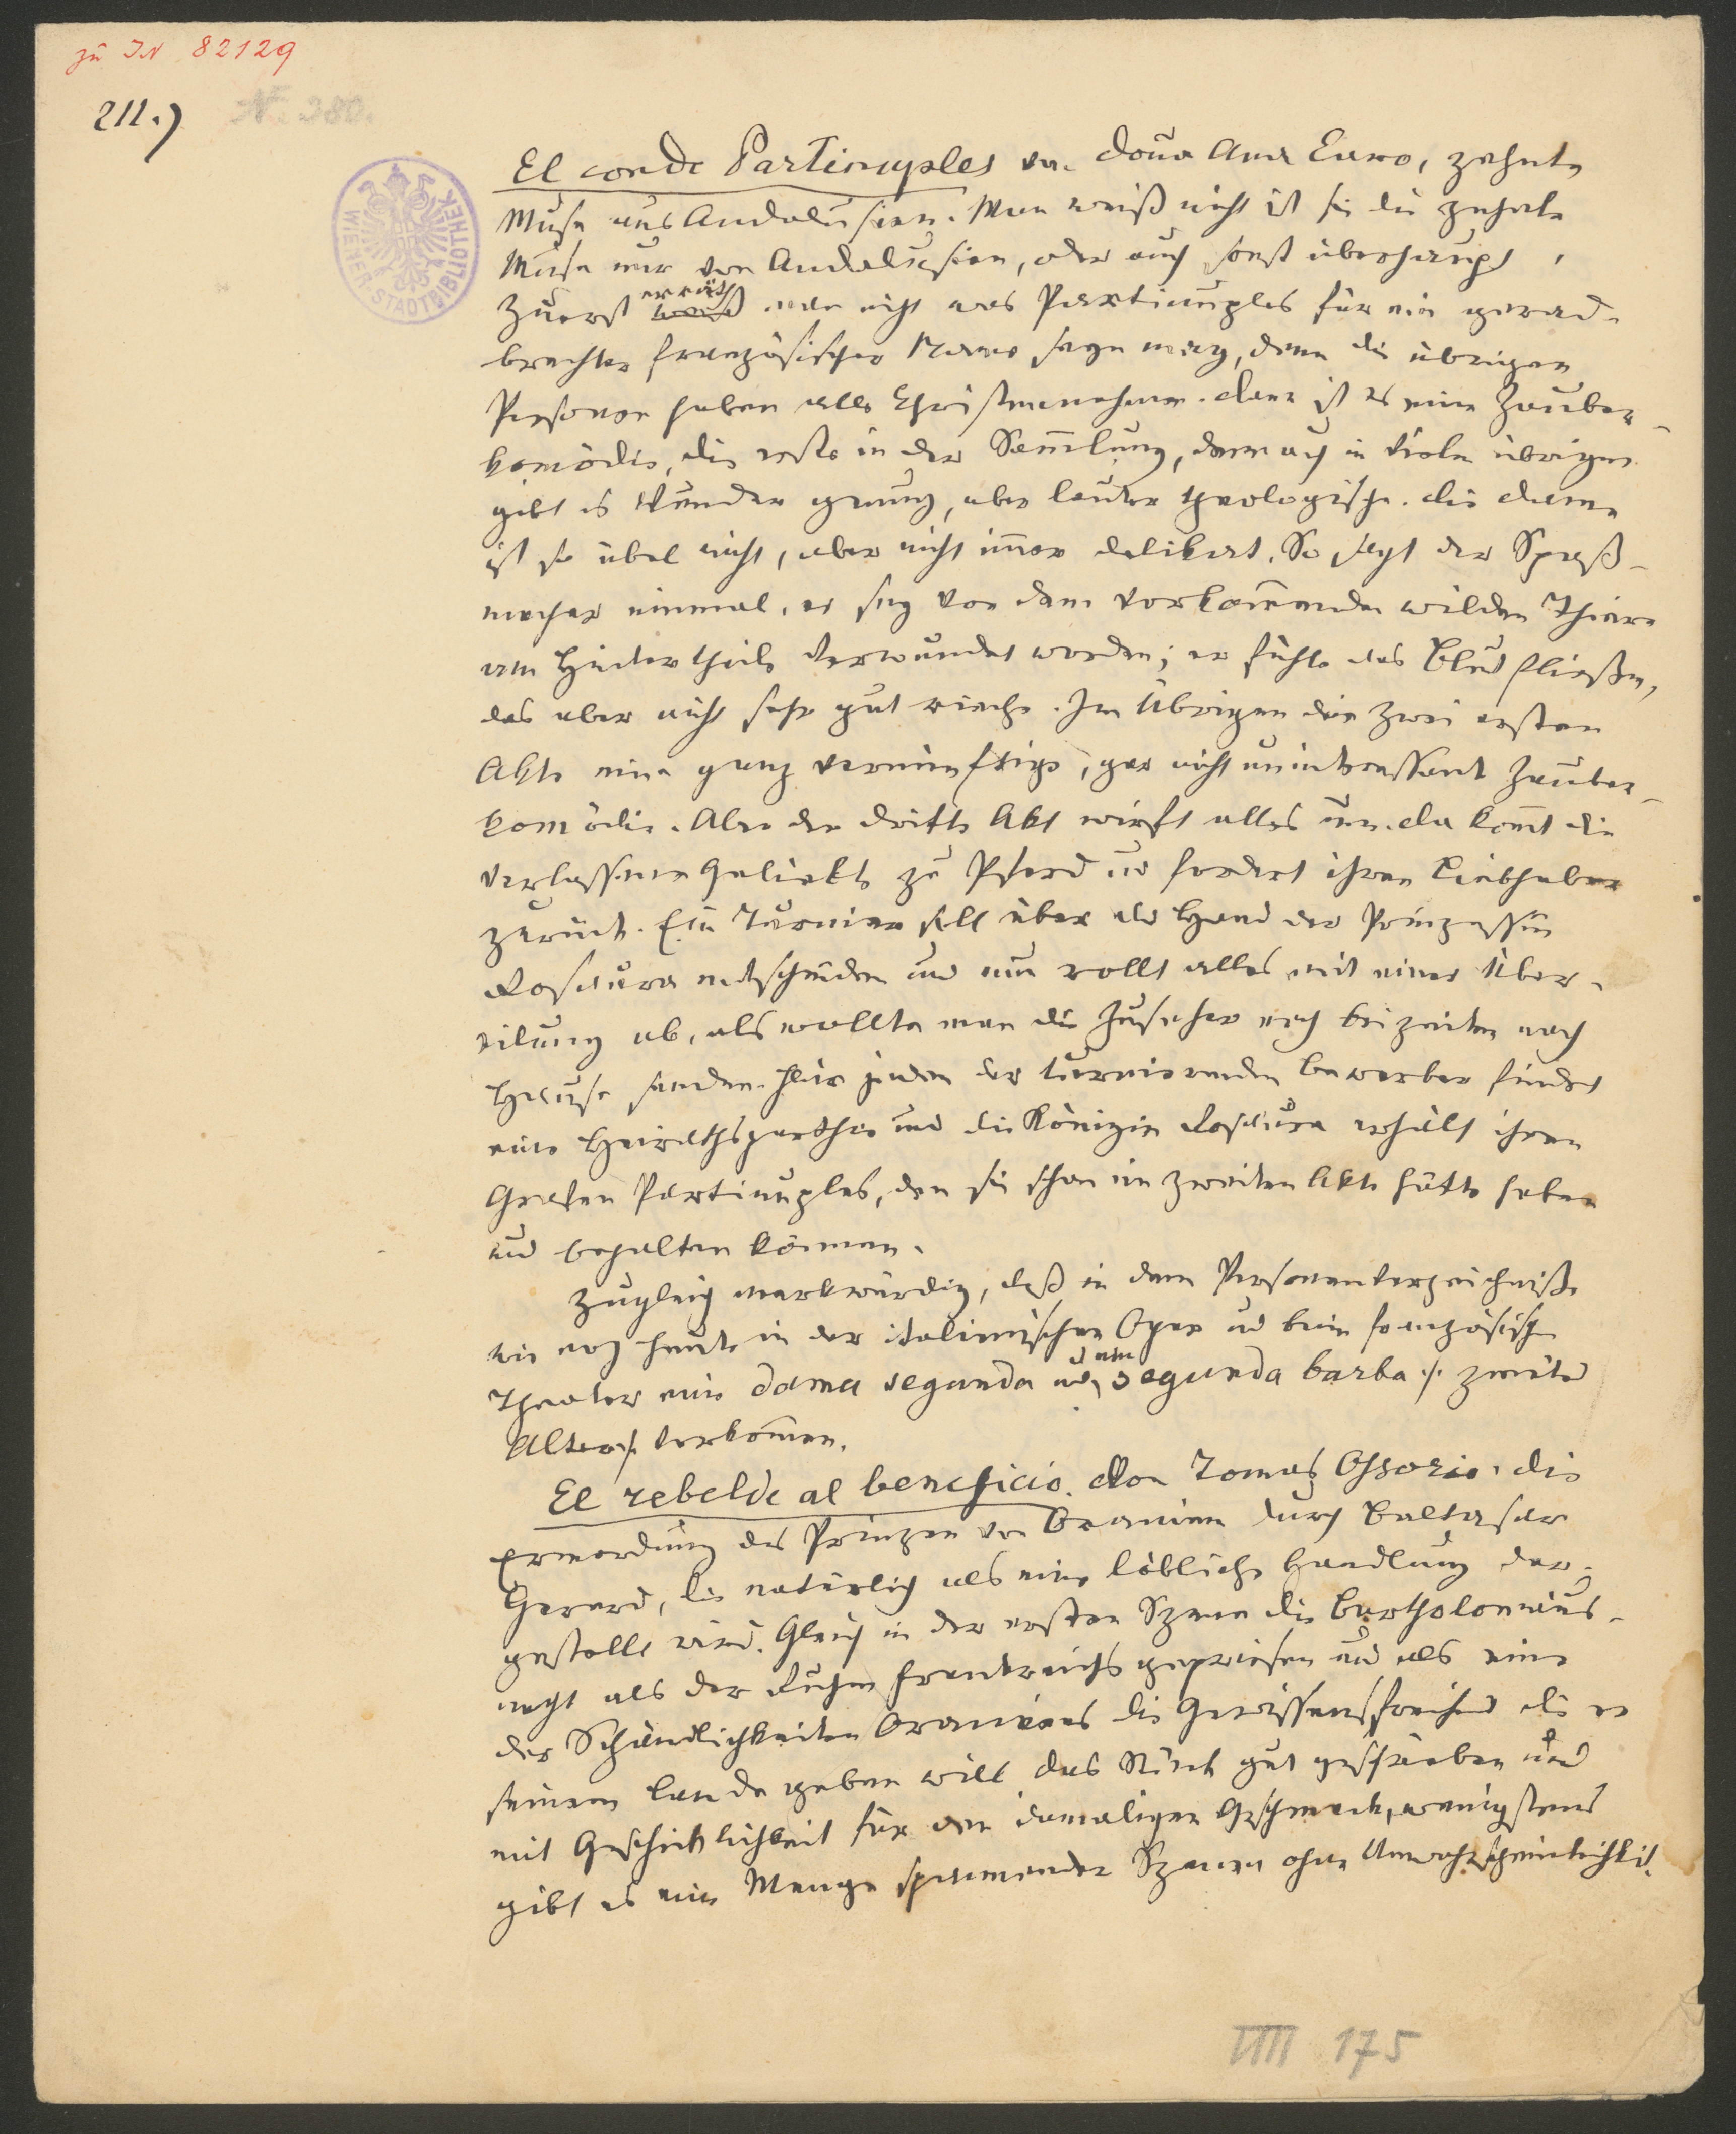 zu IN 82129
211.) N. 380.
WIENER-STADTBIBLIOTHEK
El conde Partinuples von Doña Ana Caro, zehnte
Muse aus Andalusien. Man weiß nicht ist sie die zehnte
Muse nur von Andalusien, oder auch sonst überhaupt.
Zuerst erräth man nicht was Partinuples für ein gerad-
brechter französischer Name seyn mag, denn die übrigen
Personen haben alle Christennahmen. Dann ist es eine Zauber-
komödie, die erste in der Sammlung, denn auch in vielen übrigen
gibt es Wunder genug, aber lauter theologische. Die Dame
ist so übel nicht, aber nicht immer delikat. So sagt der Spaß-
macher einmal, er sey von dem vorkommenden wilden Thiere
am Hintertheile verwundet worden; er fühle das Blut fließen,
das aber nicht sehr gut rieche. Im Übrigen die zwei ersten
Akte eine ganz vernünftige, gar nicht uninteressante Zauber-
komödie. Aber der dritte Akt wirft alles um. Da kommt die
verlassene Geliebte zu Pferd und fordert ihren Liebhaber
zurück. Ein Turnier soll über die Hand der Prinzessin
Rosaura entscheiden und nun rollt alles mit einer Über-
eilung ab, als wollte man die Zuseher noch bei zeiten nach
Hause senden. Für jeden der turnierenden Bewerber findet
eine Heirathsparthie und die Königin Rosaura erhält ihren
Grafen Partinuples, den sie schon im zweiten Akte hätte haben
und behalten können.
Zugleich merkwürdig, daß in dem Personenverzeichniße
wie noch heute in der italienischen Oper und beim französischen
Theater eine dama segunda und ein segunda barba /: zweiter
Alter :/ vorkommen.
El rebelde al beneficio. Don Tomas Ossorio. Die
Ermordung des Prinzen von Oranien durch Baltasar
Gerard, die natürlich als eine löbliche Handlung dar-
gestellt wird. Gleich in der ersten Szene die Bartholomäus-
nacht als der Ruhm Frankreichs gepriesen und als eine
der Schändlichkeiten Oraniens die Gewissensfreiheit die er
seinem Lande geben will. Das Stück gut geschrieben und
mit Geschicklichkeit für den damaligen Geschmack, wenigstens
gibt es eine Menge spannender Szenen ohne Unwahrscheinlichkeit.
175